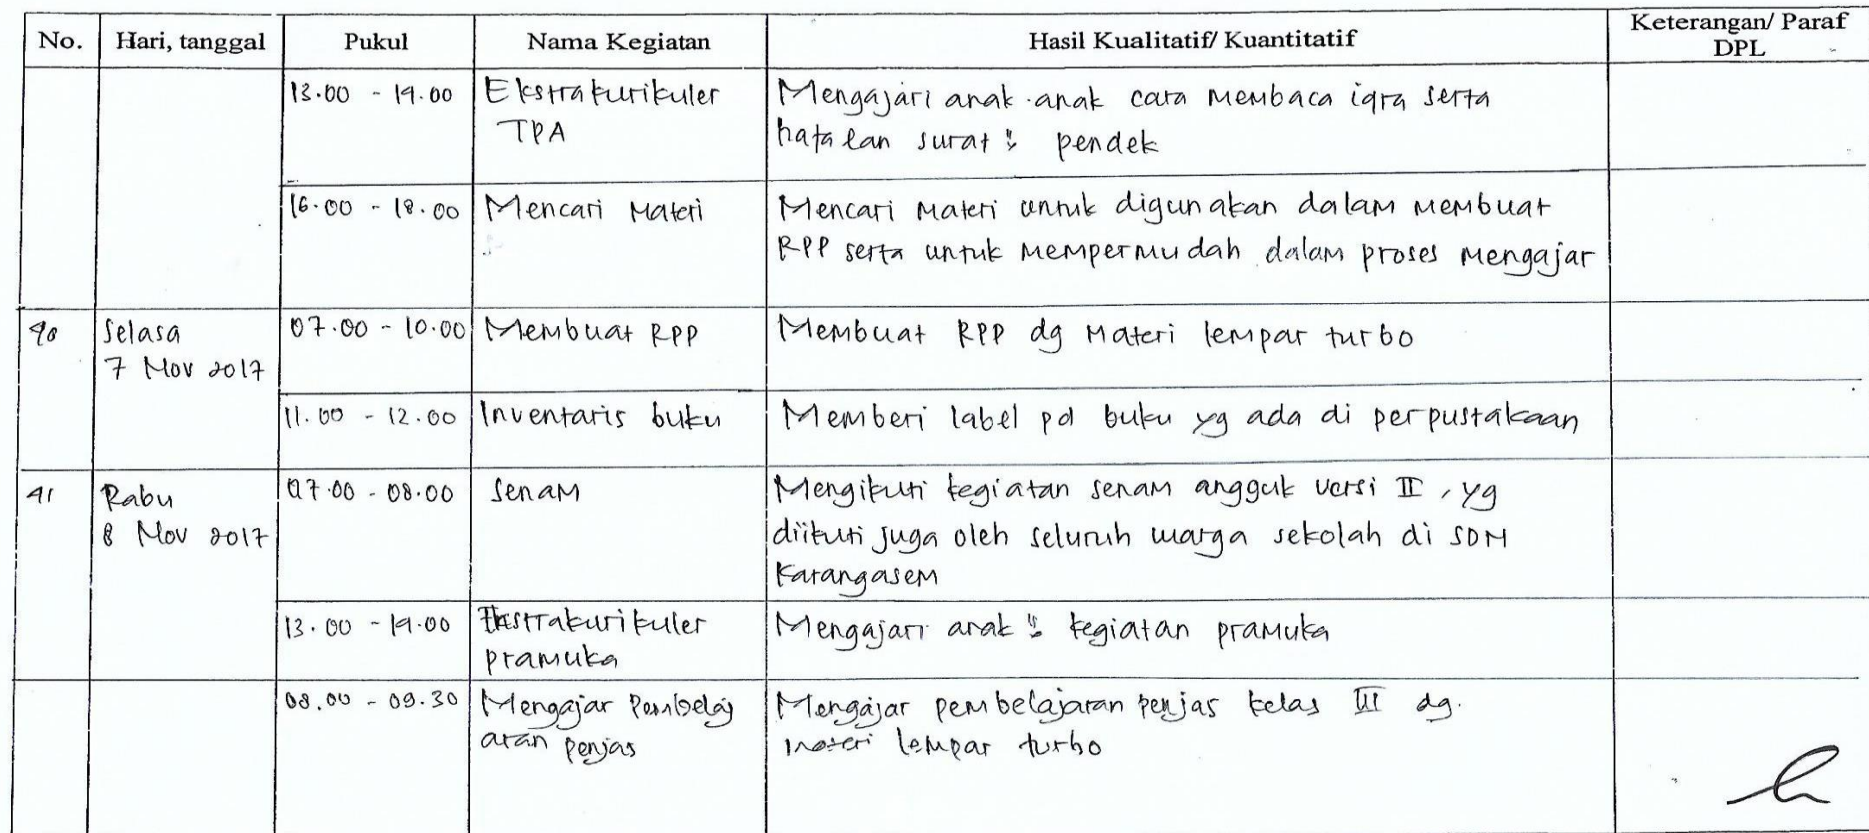 No. Hari, tanggal Pukul Nama Kegiatan Hasil Kualitatif/ Kuantitatif Keterangan/ Paraf DPL
13.00 - 14.00 Ekstrakurikuler TPA Mengajari anak-anak cara membaca iqra serta
hafalan surat" pendek
16.00 - 18.00 Mencari Materi Mencari materi untuk digunakan dalam membuat
RPP serta untuk mempermudah dalam proses mengajar
40 Selasa 7 Nov 2017 07.00 - 10.00 Membuat RPP Membuat RPP dg materi lempar turbo
11.00 - 12.00 Inventaris buku Memberi label pd buku yg ada di perpustakaan
41 Rabu 8 Nov 2017 07.00 - 08.00 Senam Mengikuti kegiatan senam angguk versi II, yg
diikuti juga oleh seluruh warga sekolah di SDN
Karangasem
13.00 - 14.00 Ekstrakurikuler pramuka Mengajari anak" kegiatan pramuka
08.00 - 09.30 Mengajar Pembelajaran penjas Mengajar pembelajaran penjas kelas III dg.
materi lempar turbo